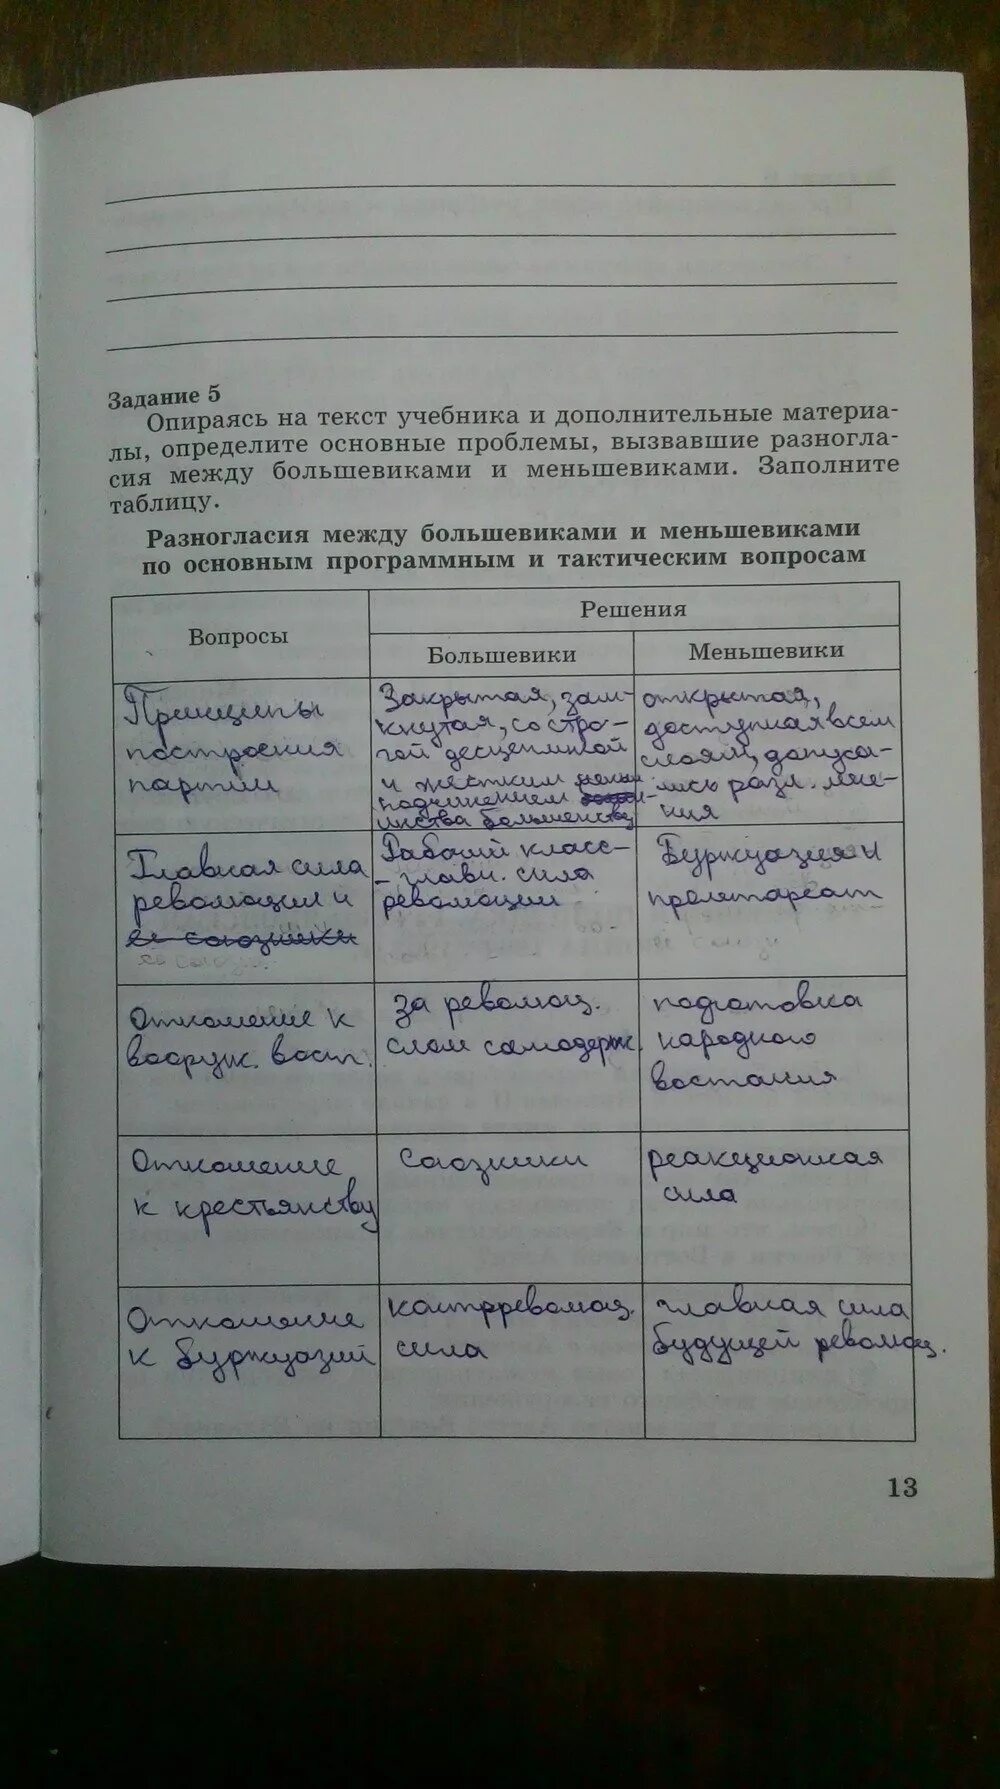 Задание 5
Опираясь на текст учебника и дополнительные материа-
лы, определите основные проблемы, вызвавшие разногла-
сия между большевиками и меньшевиками. Заполните
таблицу.
Разногласия между большевиками и меньшевиками
по основным программным и тактическим вопросам
Вопросы
Решения
Большевики
Меньшевики
Принципы
построения
партии
Закрытая, зам-
кнутая, со стро-
гой дисциплиной
и жестким
подчинением
инства большенству
открытая,
доступная всем
слоям, допуса-
лись разл. мне-
ния
Главная сила
революции и
ее союзники
Рабочий класс-
- главн. сила
революции
Буржуазия и
пролетареат
Отношение к
вооруж. восст.
за революц.
слом самодерж.
подготовка
народного
востания
Отношение
к крестьянству
Союзники
реакционная
сила
Отношение
к буржуазий
контрреволюц.
сила
главная сила
будущей революц.
13